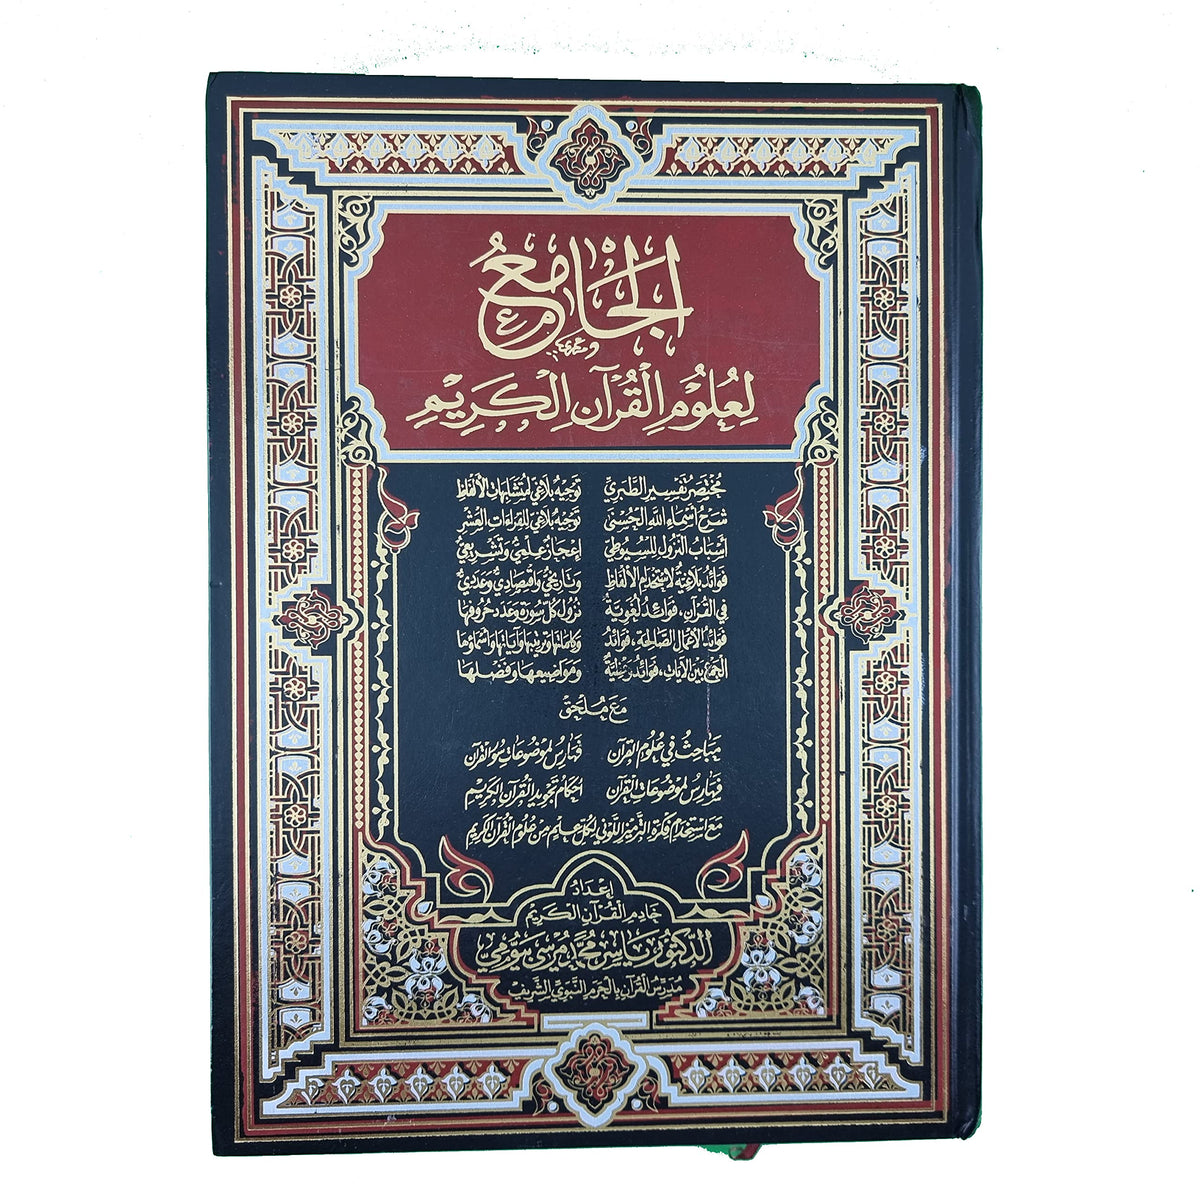 الجامع
لعلوم القرآن الكريم
مختصر تفسير الطبري
شرح أسماء الله الحسنى
أسباب النزول للسيوطي
فوائد بلاغية لاستخدام الألفاظ
في القرآن، فوائد لغوية
فوائد الأعمال الصالحة، فوائد
الجمع بين الآيات، فوائد
توجيه بلاغي لمتشابهات الألفاظ
توجيه بلاغي للقراءات العشر
إعجاز علمي وتشريعي
وتاريخي واقتصادي وعددي
نزول كل سورة وعدد حروفها
وكلماتها وترتيبها وآياتها وأسماؤها
ومواضيعها وفضلها
مع ملحق
مباحث في علوم القرآن
فهارس لموضوعات القرآن
فهارس لموضوعات القرآن
أحكام تجويد القرآن الكريم
مع استخدام فكرة الترميز اللوني لكل علم من علوم القرآن الكريم
إعداد
خادم القرآن الكريم
الدكتور ياسر محمد مرسي بيومي
مدرس القرآن بالحرم النبوي الشريف